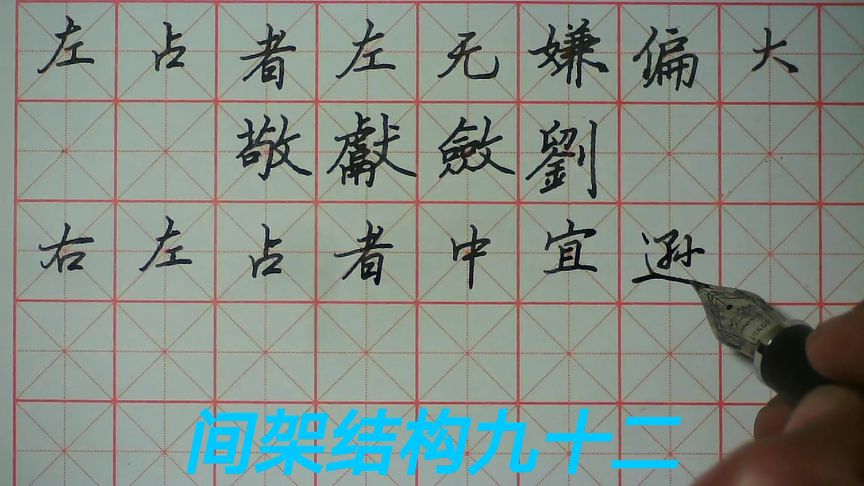 左占者左无嫌偏大
敬獻斂劉
右左占者中宜逊
间架结构九十二